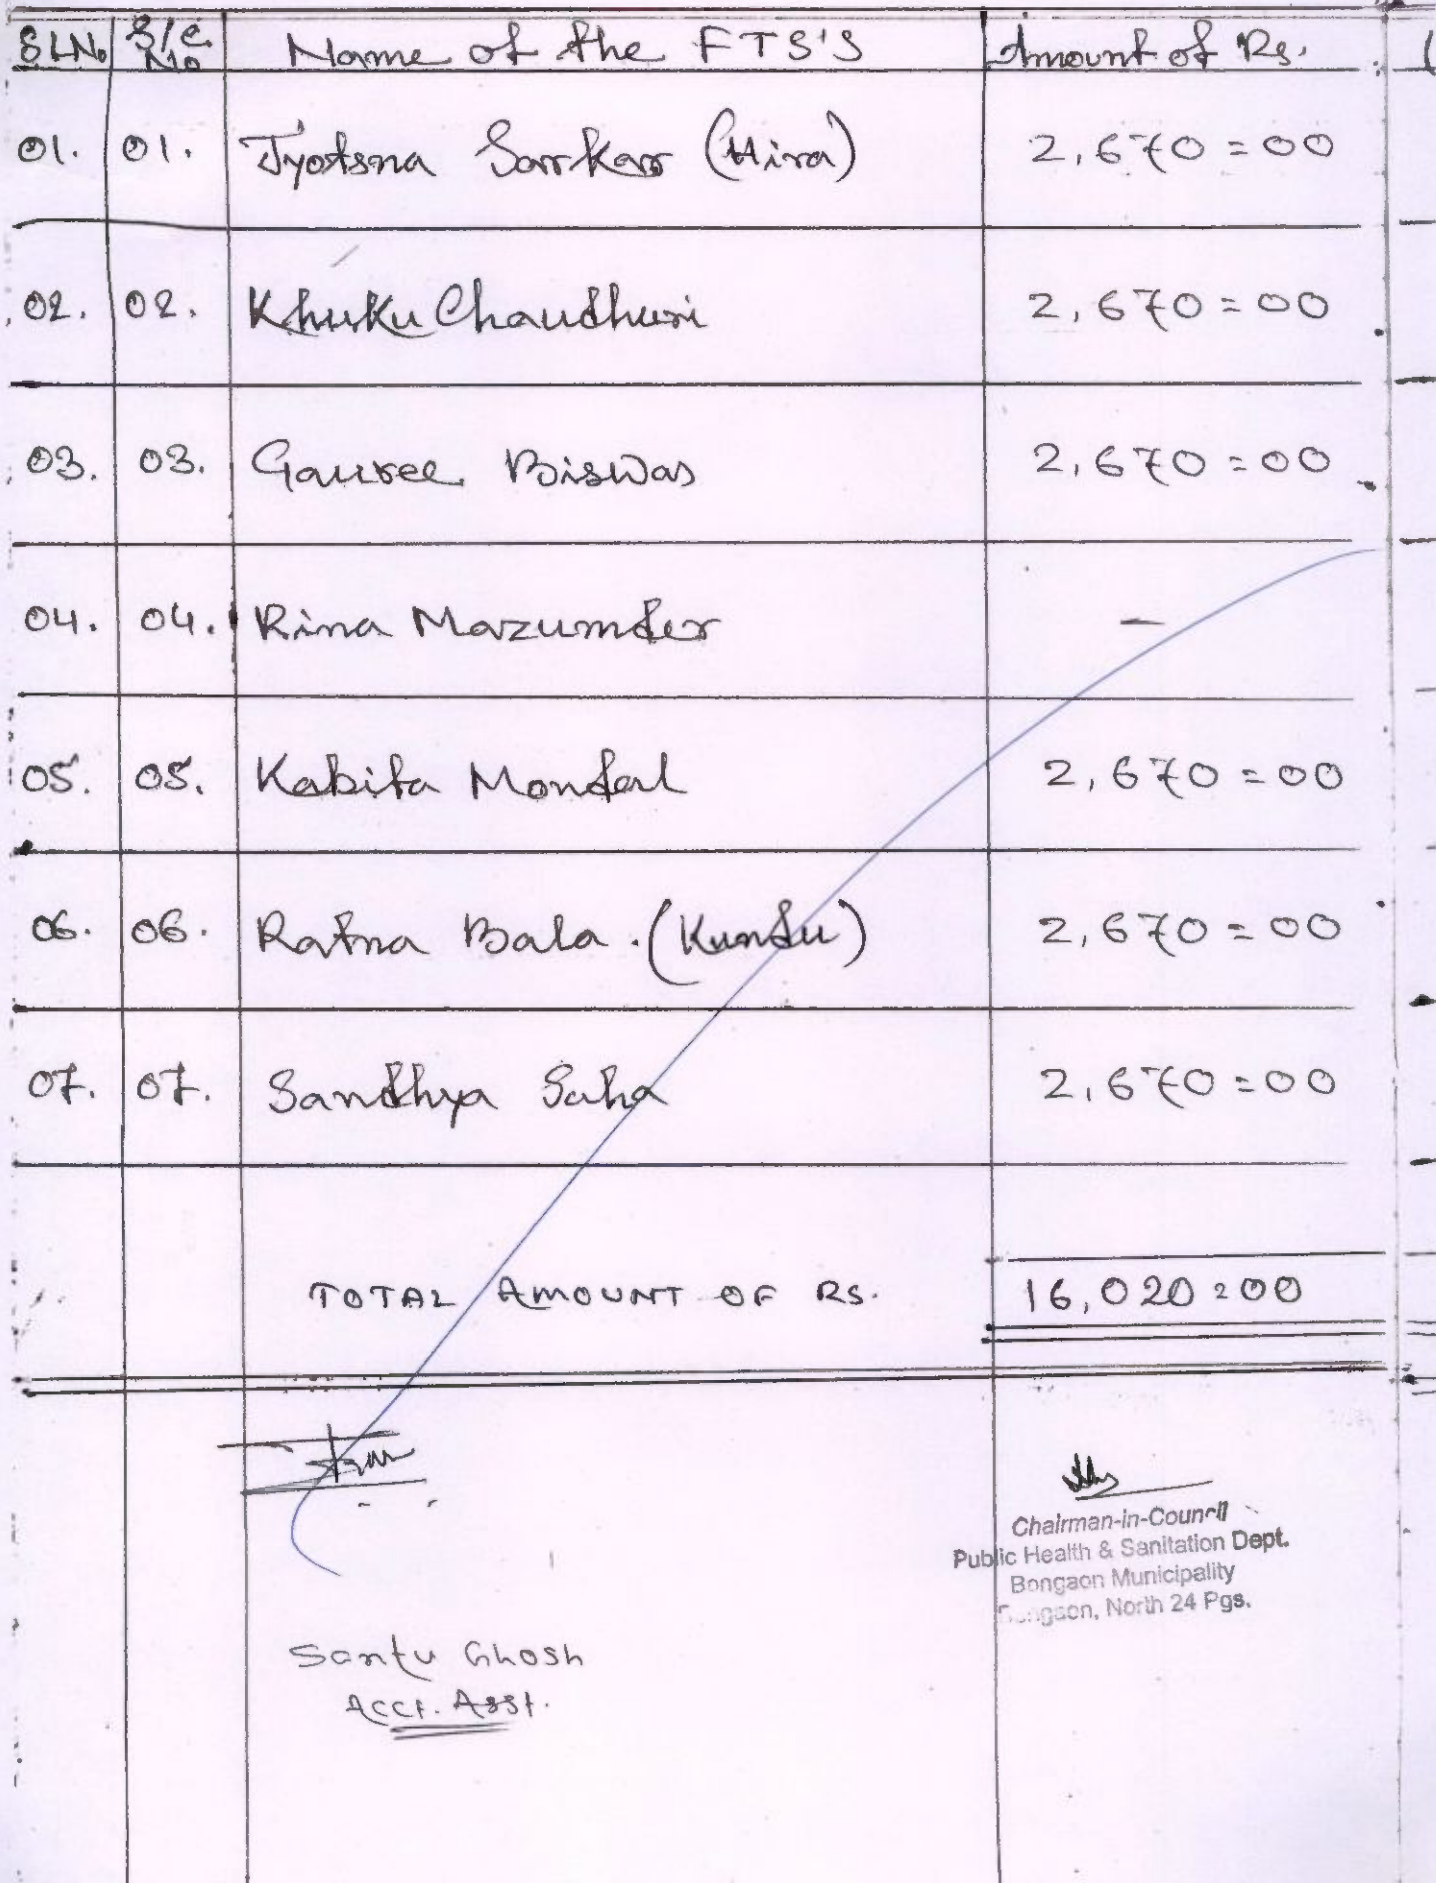 SLNo S/C No Name of the FTS'S Amount of Rs.
01. 01. Jyotsna Sarkar (Hira) 2,670=00
02. 02. Khuku Chaudhuri 2,670=00
03. 03. Gauree Biswas 2,670=00
04. 04. Rina Mazumder —
05. 05. Kabita Mondal 2,670=00
06. 06. Ratna Bala. (Kundu) 2,670=00
07. 07. Sandhya Saha 2,670=00
TOTAL AMOUNT OF RS. 16,020=00
Chairman-in-Council
Public Health & Sanitation Dept.
Bongaon Municipality
Bongaon, North 24 Pgs.
Santu Ghosh
Acct. Asst.